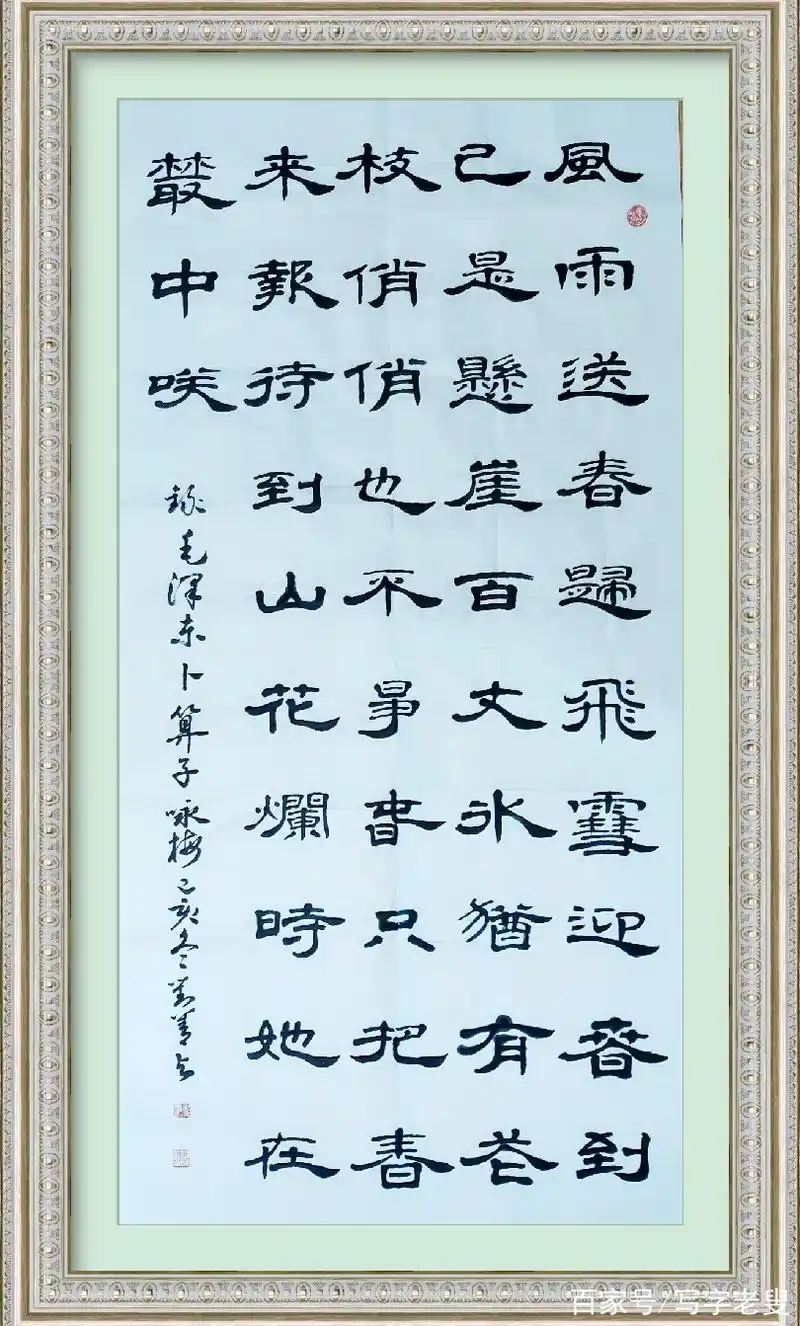 風雨送春歸飛雪迎春到
已是懸崖百丈氷猶有花
枝俏俏也不爭春只把春
来報待到山花爛時她在
叢中咲
録毛泽东卜算子咏梅己亥冬
百家号/写字老叟